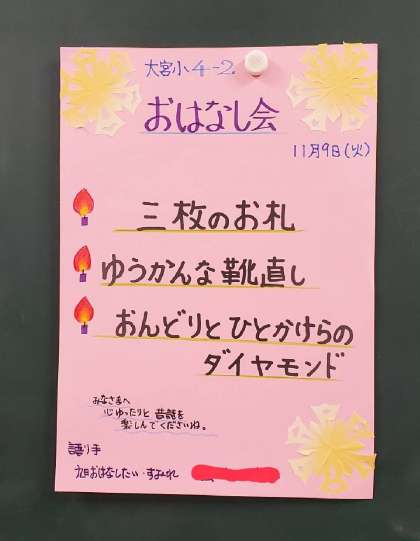 大宮小4-2.
おはなし会
11月9日(火)
三枚のお札
ゆうかんな靴直し
おんどりとひとかけらの
ダイヤモンド
みなさまへ
心ゆったりと昔話を
楽しんでくださいね。
語り手
おはなしたい・すみれ